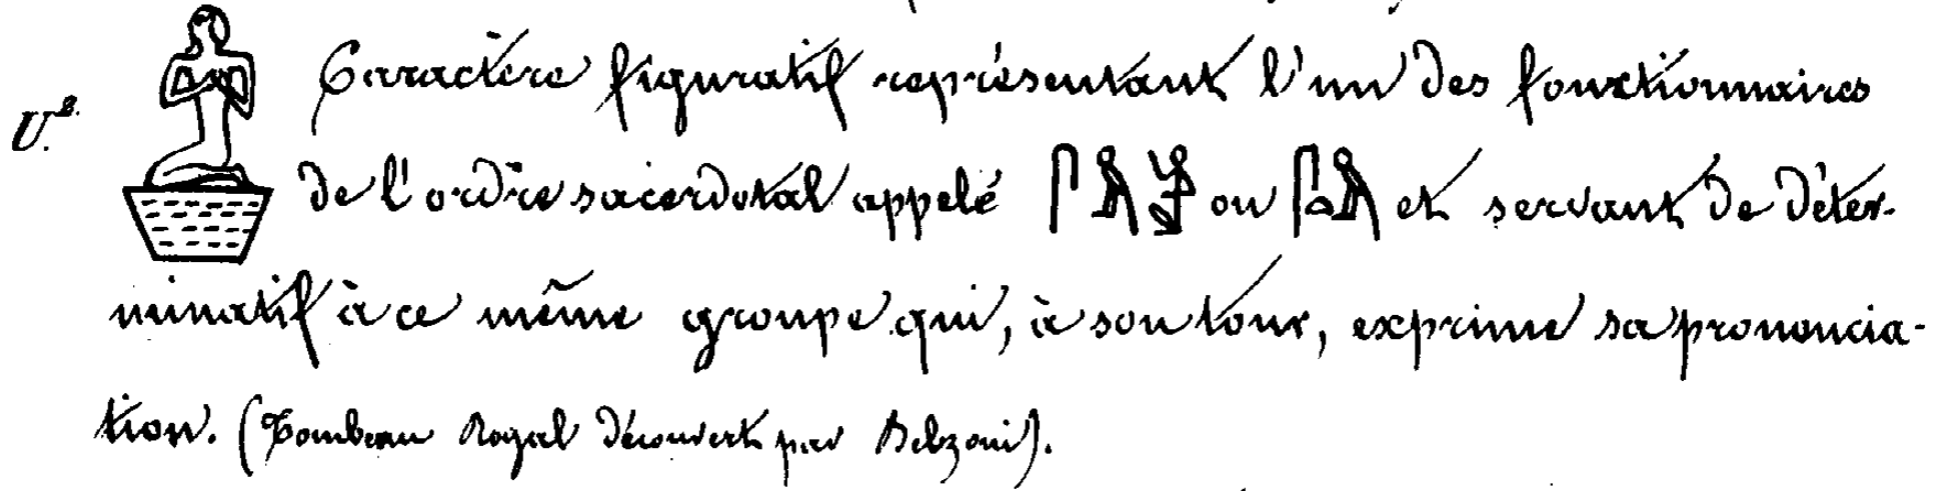 U.e. Caractère figuratif représentant l'un des fonctionnaires
de l'ordre sacerdotal appelé ou et servant de déter-
minatif à ce même groupe qui, à son tour, exprime sa prononcia-
tion. (Tombeau Royal découvert par Belzoni).